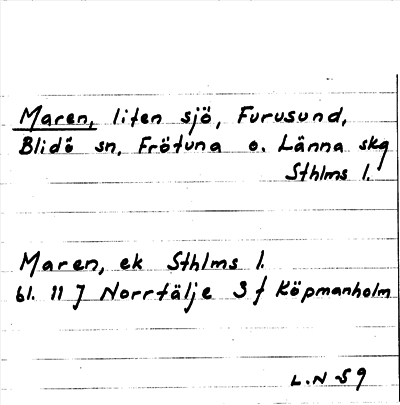 Maren, liten sjö, Furusund,
Blidö sn, Frötuna o. Länna skg
Sthlms l.
Maren, ek Sthlms l.
bl. 11 J Norrtälje S f Köpmanholm
L.N -59